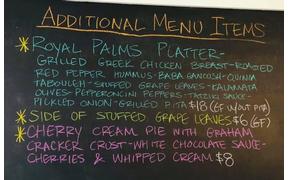 ADDITIONAL MENU ITEMS
ROYAL PALMS PLATTER-
GRILLED GREEK CHICKEN BREAST-ROASTED
RED PEPPER HUMMUS-BABA GANOOSH-QUINIA
TABOULEH-STUFFED GRAPE LEAVES-KALAMATA
OLIVES-PEPPERONCINI PEPPERS-TATZIKI SAUCE-
PICKLED ONION-GRILLED PITA $18 (GF W/OUT PITA)
SIDE OF STUFFED GRAPE LEAVES $6 (GF)
CHERRY CREAM PIE WITH GRAHAM
CRACKER CRUST-WHITE CHOCOLATE SAUCE-
CHERRIES & WHIPPED CREAM $8